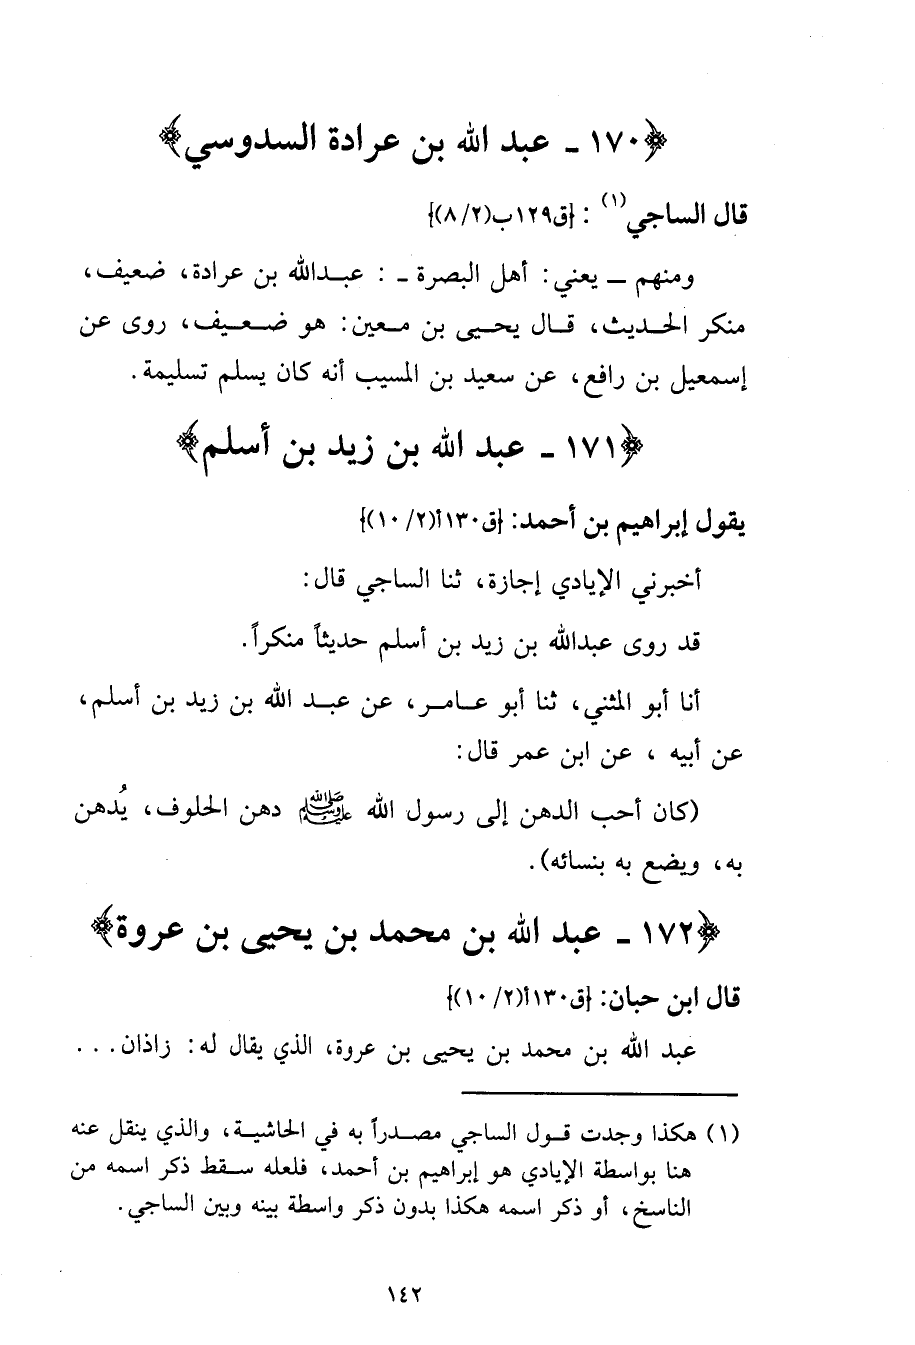 ﴿١٧٠ - عبد الله بن عرادة السدوسي﴾
قال الساجي(١) : {ق١٢٩ب(٨/٢)}
ومنهم – يعني: أهل البصرة - : عبدالله بن عرادة، ضعيف،
منكر الحديث، قال يحيى بن معين: هو ضعيف، روى عن
إسمعيل بن رافع، عن سعيد بن المسيب أنه كان يسلم تسليمة.
﴿١٧١ - عبد الله بن زيد بن أسلم﴾
يقول إبراهيم بن أحمد: {ق١٣٠أ(١٠/٢)}
أخبرني الإيادي إجازة، ثنا الساجي قال:
قد روى عبدالله بن زيد بن أسلم حديثاً منكراً.
أنا أبو المثني، ثنا أبو عامر، عن عبد الله بن زيد بن أسلم،
عن أبيه ، عن ابن عمر قال:
(كان أحب الدهن إلى رسول الله ﷺ دهن الخلوف، يُدهن
به، ويضع به بنسائه).
﴿١٧٢ - عبد الله بن محمد بن يحيى بن عروة﴾
قال ابن حبان: {ق١٣٠أ(١٠/٢)}
عبد الله بن محمد بن يحيى بن عروة، الذي يقال له: زاذان...
(١) هكذا وجدت قول الساجي مصدراً به في الحاشية، والذي ينقل عنه
هنا بواسطة الإيادي هو إبراهيم بن أحمد، فلعله سقط ذكر اسمه من
الناسخ، أو ذكر اسمه هكذا بدون ذكر واسطة بينه وبين الساجي.
١٤٢